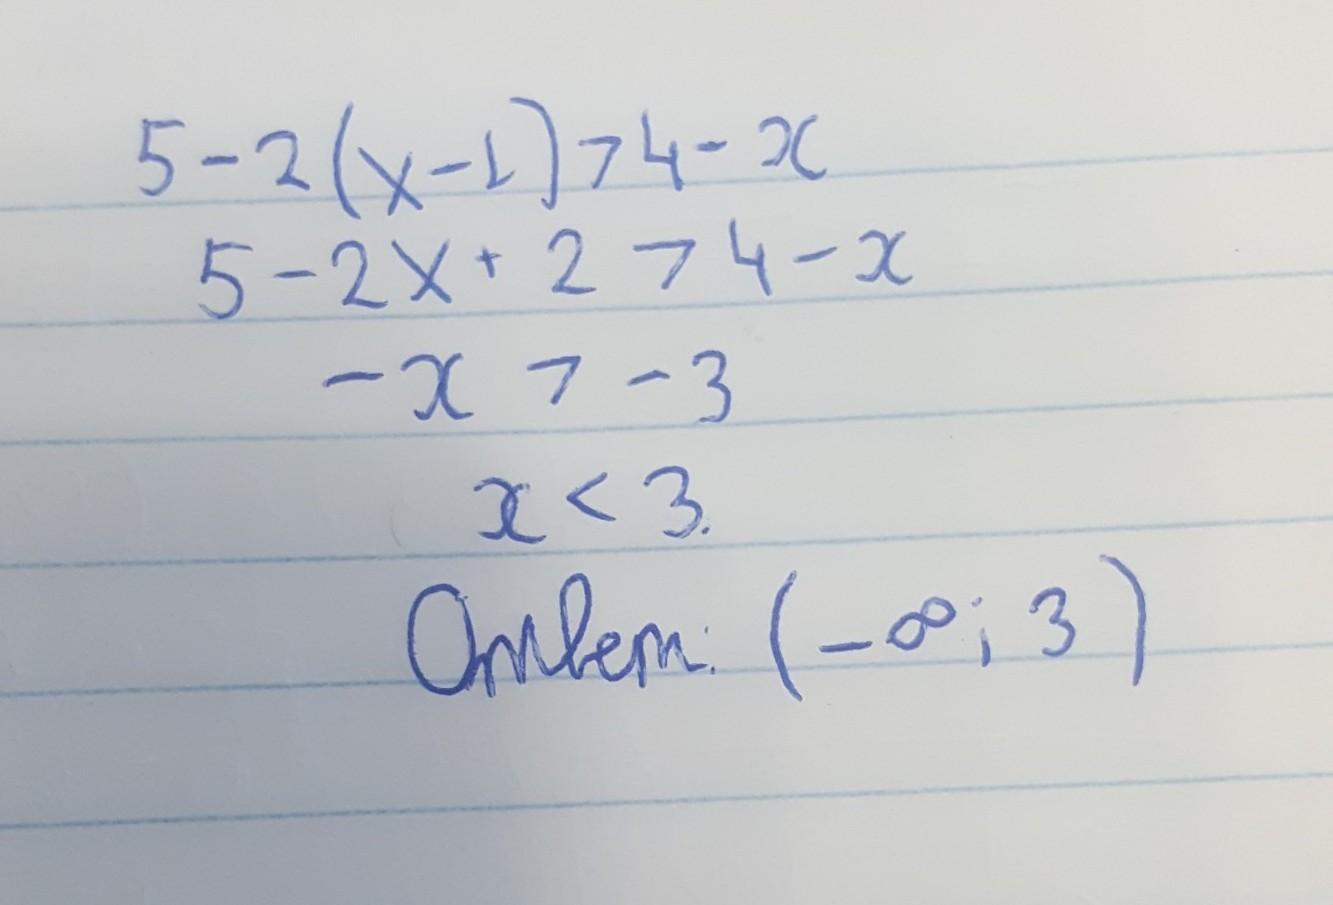 5-2(x-1)>4-x
5-2x+2>4-x
-x>-3
x<3.
Ответ: (-∞; 3)